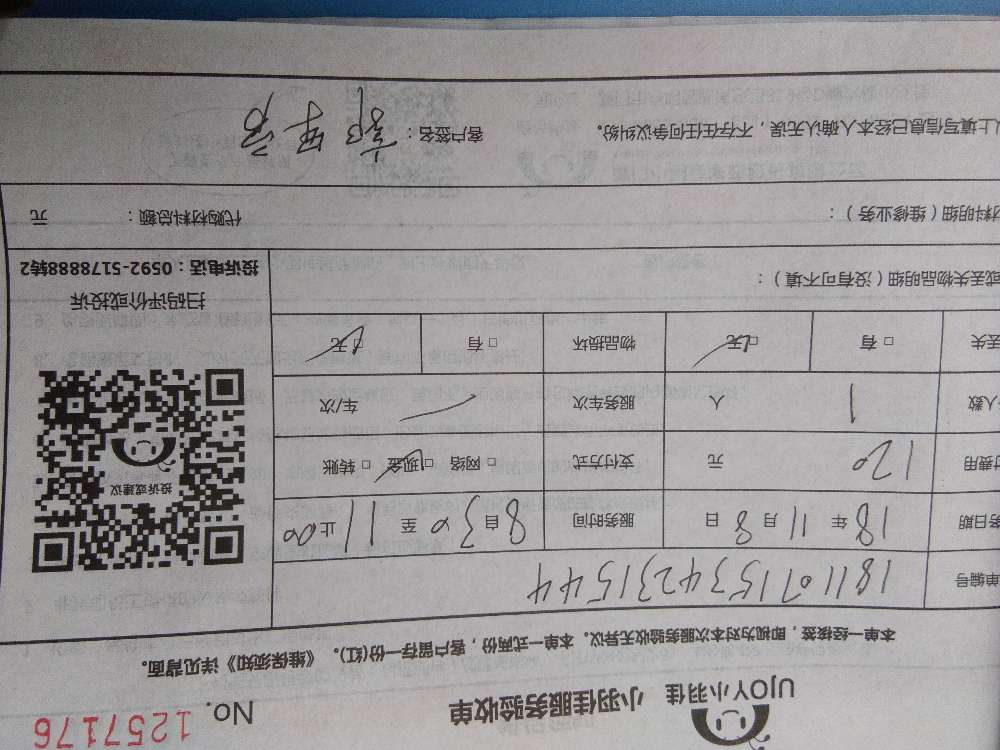 UJOY小羽佳 小羽佳服务验收单 No. 1257176
本单一经核签，即视为对本次服务验收无异议。本单一式两份，客户留存一份(红)。《维保须知》详见背面。
单编号 181107153423 1544
务日期 18 年 11 月 8 日 服务时间 自 8 30 至 11 止 00
付费用 120 元 支付方式 □ 网络 □ 现金 □ 转账
人数 1 人 服务车次 车/次
丢失 □ 有 □ 无 物品损坏 □ 有 □ 无
投诉或建议
扫码评价或投诉
投诉电话：0592-5178888转2
或丢失物品明细（没有可不填）：
材料明细（维修业务）： 代购材料总额： 元
以上填写信息已经本人确认无误，不存在任何争议纠纷。 客户签名：